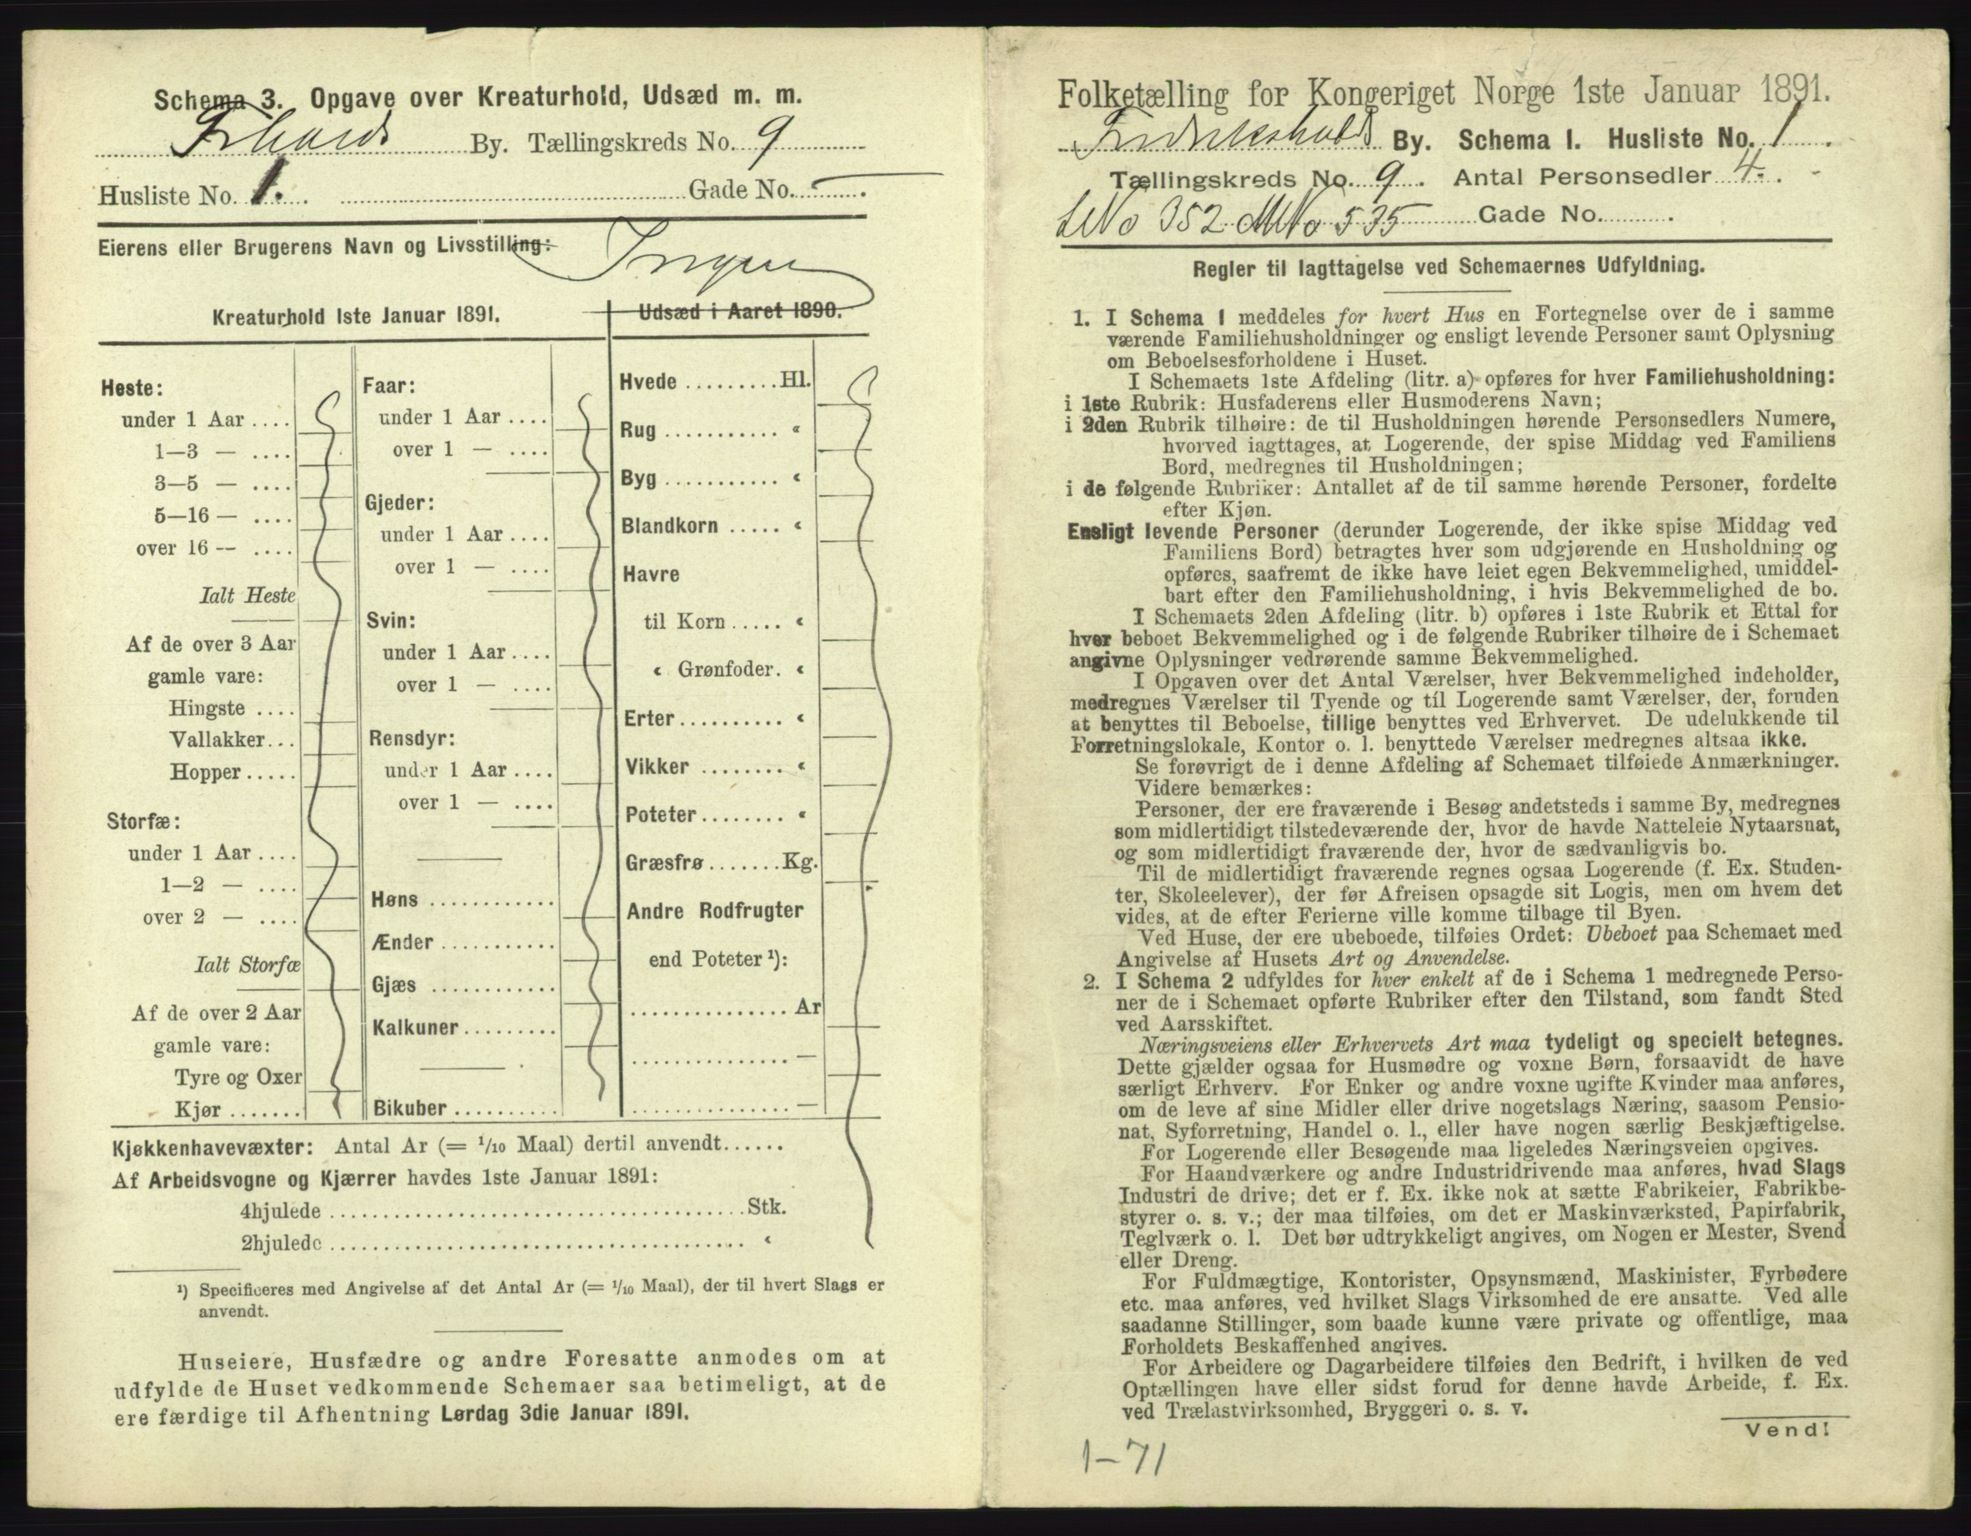 Schema 3. Opgave over Kreaturhold, Udsæd m. m.
Frhalds By. Tællingskreds No. 9
Husliste No. 1. Gade No. –
Eierens eller Brugerens Navn og Livsstilling:
Ingen
Kreaturhold 1ste Januar 1891.
Heste:
under 1 Aar ....
1—3 — ....
3—5 — ....
5—16 — ....
over 16 — ....
Ialt Heste
Af de over 3 Aar
gamle vare:
Hingste ....
Vallakker...
Hopper.....
Storfæ:
under 1 Aar....
1—2 — ....
over 2 — ....
Ialt Storfæ
Af de over 2 Aar
gamle vare:
Tyre og Oxer
Kjør .......
Faar:
under 1 Aar ....
over 1 — ....
Gjeder:
under 1 Aar....
over 1 — ....
Svin:
under 1 Aar....
over 1 — ....
Rensdyr:
under 1 Aar ....
over 1 — ....
Høns ............
Ænder ...........
Gjæs ............
Kalkuner.........
Bikuber..........
Udsæd i Aaret 1890.
Hvede .........Hl.
Rug ........... "
Byg ........... "
Blandkorn ..... "
Havre
til Korn ..... "
" Grønfoder. "
Erter.......... "
Vikker ........ "
Poteter........ "
Græsfrø .......Kg.
Andre Rodfrugter
end Poteter ¹):
............... Ar
............... —
............... —
Kjøkkenhavevæxter: Antal Ar (= 1/10 Maal) dertil anvendt......
Af Arbeidsvogne og Kjærrer havdes 1ste Januar 1891:
4hjulede ........................................Stk.
2hjulede ........................................ "
¹) Specificeres med Angivelse af det Antal Ar (= 1/10 Maal), der til hvert Slags er
anvendt.
Huseiere, Husfædre og andre Foresatte anmodes om at
udfylde de Huset vedkommende Schemaer saa betimeligt, at de
ere færdige til Afhentning Lørdag 3die Januar 1891.
Folketælling for Kongeriget Norge 1ste Januar 1891.
Fredrikshalds By. Schema I. Husliste No. 1.
Tællingskreds No. 9. Antal Personsedler 4.
LNo 352 MNo 535 Gade No.
Regler til Iagttagelse ved Schemaernes Udfyldning.
1. I Schema 1 meddeles for hvert Hus en Fortegnelse over de i samme
værende Familiehusholdninger og ensligt levende Personer samt Oplysning
om Beboelsesforholdene i Huset.
I Schemaets 1ste Afdeling (litr. a) opføres for hver Familiehusholdning:
i 1ste Rubrik: Husfaderens eller Husmoderens Navn;
i 2den Rubrik tilhøire: de til Husholdningen hørende Personsedlers Numere,
hvorved iagttages, at Logerende, der spise Middag ved Familiens
Bord, medregnes til Husholdningen;
i de følgende Rubriker: Antallet af de til samme hørende Personer, fordelte
efter Kjøn.
Ensligt levende Personer (derunder Logerende, der ikke spise Middag ved
Familiens Bord) betragtes hver som udgjørende en Husholdning og
opføres, saafremt de ikke have leiet egen Bekvemmelighed, umiddel-
bart efter den Familiehusholdning, i hvis Bekvemmelighed de bo.
I Schemaets 2den Afdeling (litr. b) opføres i 1ste Rubrik et Ettal for
hver beboet Bekvemmelighed og i de følgende Rubriker tilhøire de i Schemaet
angivne Oplysninger vedrørende samme Bekvemmelighed.
I Opgaven over det Antal Værelser, hver Bekvemmelighed indeholder,
medregnes Værelser til Tyende og til Logerende samt Værelser, der, foruden
at benyttes til Beboelse, tillige benyttes ved Erhvervet. De udelukkende til
Forretningslokale, Kontor o. l. benyttede Værelser medregnes altsaa ikke.
Se forøvrigt de i denne Afdeling af Schemaet tilføiede Anmærkninger.
Videre bemærkes:
Personer, der ere fraværende i Besøg andetsteds i samme By, medregnes
som midlertidigt tilstedeværende der, hvor de havde Natteleie Nytaarsnat,
og som midlertidigt fraværende der, hvor de sædvanligvis bo.
Til de midlertidigt fraværende regnes ogsaa Logerende (f. Ex. Studen-
ter, Skoleelever), der før Afreisen opsagde sit Logis, men om hvem det
vides, at de efter Ferierne ville komme tilbage til Byen.
Ved Huse, der ere ubeboede, tilføies Ordet: Ubeboet paa Schemaet med
Angivelse af Husets Art og Anvendelse.
2. I Schema 2 udfyldes for hver enkelt af de i Schema 1 medregnede Perso-
ner de i Schemaet opførte Rubriker efter den Tilstand, som fandt Sted
ved Aarsskiftet.
Næringsveiens eller Erhvervets Art maa tydeligt og specielt betegnes.
Dette gjælder ogsaa for Husmødre og voxne Børn, forsaavidt de have
særligt Erhverv. For Enker og andre voxne ugifte Kvinder maa anføres,
om de leve af sine Midler eller drive nogetslags Næring, saasom Pensio-
nat, Syforretning, Handel o. l., eller have nogen særlig Beskjæftigelse.
For Logerende eller Besøgende maa ligeledes Næringsveien opgives.
For Haandværkere og andre Industridrivende maa anføres, hvad Slags
Industri de drive; det er f. Ex. ikke nok at sætte Fabrikeier, Fabrikbe-
styrer o. s. v.; der maa tilføies, om det er Maskinværksted, Papirfabrik,
Teglværk o. l. Det bør udtrykkeligt angives, om Nogen er Mester, Svend
eller Dreng.
For Fuldmægtige, Kontorister, Opsynsmænd, Maskinister, Fyrbødere
etc. maa anføres, ved hvilket Slags Virksomhed de ere ansatte. Ved alle
saadanne Stillinger, som baade kunne være private og offentlige, maa
Forholdets Beskaffenhed angives.
For Arbeidere og Dagarbeidere tilføies den Bedrift, i hvilken de ved
Optællingen have eller sidst forud for denne havde Arbeide, f. Ex.
ved Trælastvirksomhed, Bryggeri o. s. v.
Vend!
1–71